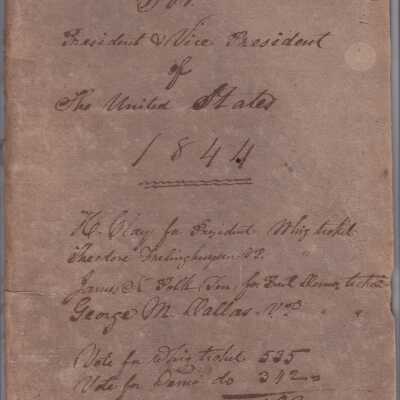 For
President & Vice President
of
The United States
1844
H. Clay for President Whig ticket
Theodore Frelinghuysen V.P. "
James K Polk Ten. for Prest Democ ticket
George M. Dallas. V.P. " "
Vote for Whig ticket 535
Vote for Demo do 342